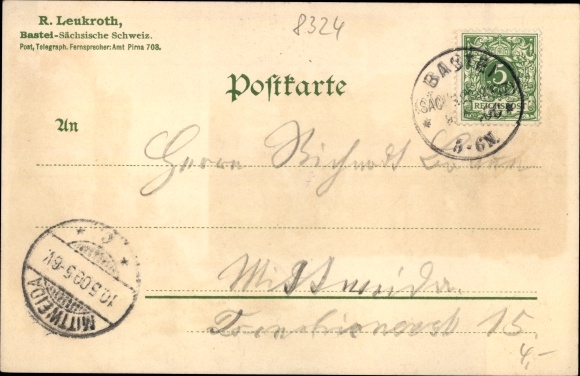 R. Leukroth,
Bastei-Sächsische Schweiz.
Post, Telegraph. Fernsprecher: Amt Pirna 708.
8324
Postkarte
BASTEI
5
REICHSPOST
5-6N.
An
Herrn Richard
Mittweida.
15.
MITTWEIDA
10.5.00.5-6V.
4,-